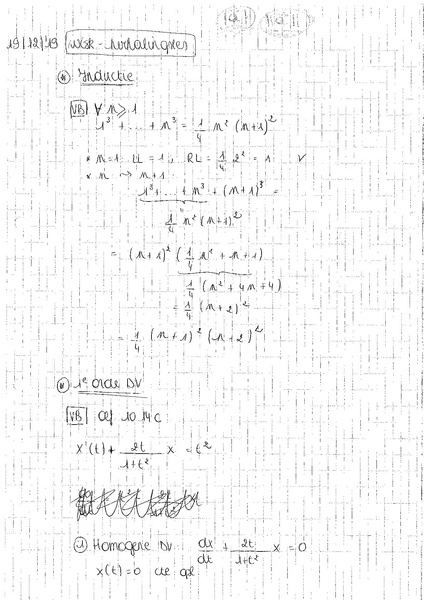 19/12/'13 wsk-herhalingsles
* Inductie
VB ∀ n ≥ 1
1³ + ... + n³ = 1/4 n² (n+1)²
* n=1 LL = 1, RL = 1/4 2² = 1 ✓
* n → n+1
1³ + ... + n³ + (n+1)³ =
1/4 n² (n+1)²
= (n+1)² (1/4 n² + n + 1)
1/4 (n² + 4n + 4)
= 1/4 (n+2)²
= 1/4 (n+1)² (n+2)²
* 1e orde DV
VB oef 10.14 c
x'(t) + 2t/(1+t²) x = t²
① Homogene DV: dx/dt + 2t/(1+t²) x = 0
x(t) = 0 cte opl